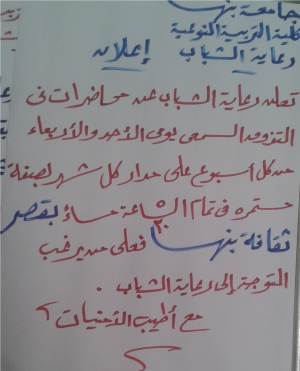 جامعة بنها
كلية التربية النوعية
رعاية الشباب إعلان
تعلن رعاية الشباب عن محاضرات فى
التزوود السمعى يومى الأحد والأربعاء
من كل أسبوع على مدار كل شهر بصفة
مستمره فى تمام الساعة مساءً بقصر
ثقافة بنها فعلى من يرغب
التوجة إلى رعاية الشباب .
مع أطيب الأمنيات ؟